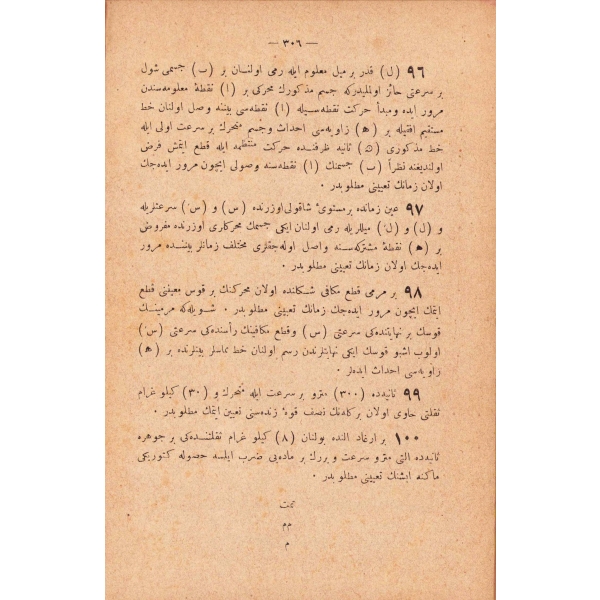 — ٣٠٦ —
٩٦ (ل) قدر بر ميل معلوم ايله رمى اولنان بر (ب) جسمى شول
بر سرعتى حائز اولمليدركه جسم مذكورك محركى بر (ا) نقطهٔ معلومه‌سندن
مرور ايده ومبدأ حركت نقطه‌سيله (ا) نقطه‌سى بيننه وصل اولنان خط
مستقيم افقيله بر (ﻫ) زاويه‌سى احداث وجسم متحرك بر سرعت اولى ايله
خط مذكورى ثانيه ظرفنده حركت منتظمه ايله قطع ايتمش فرض
اولنديغنه نظراً (ب) جسمنك (ا) نقطه‌سنه وصولى ايچون مرور ايده‌جك
اولان زمانك تعيينى مطلوبدر .
٩٧ عين زمانده بر مستوئ شاقولى اوزرنده (س) و (سَ) سرعتلريله
و (ل) و (لَ) ميللريله رمى اولنان ايكى جسمك محركلرى اوزرنده مفروض
بر (ﻫ) نقطهٔ مشتركه‌سنه واصل اوله‌جقلرى مختلف زمانلر بيننده مرور
ايده‌جك اولان زمانك تعيينى مطلوبدر .
٩٨ بر مرمى قطع مكافى شكلنده اولان محركنك بر قوس معينى قطع
ايتمك ايچون مرور ايده‌جك زمانك تعيينى مطلوبدر . شويله‌كه مرمينك
قوسك بر نهايتنده‌كى سرعتى (س) وقطع مكافينك رأسنده‌كى سرعتى (سَ)
اولوب اشبو قوسك ايكى نهايتلرندن رسم اولنان خط مماسلر بينلرنده بر (ﻫ)
زاويه‌سى احداث ايدرلر
٩٩ ثانيه‌ده (٣٠٠) مترو بر سرعت ايله متحرك و (٣٠) كيلو غرام
ثقلتى حاوى اولان بر كله‌نك نصف قوهٔ زنده‌سنى تعيين ايتمك مطلوبدر .
١٠٠ بر ارغاد النده بولنان (٨) كيلو غرام ثقلتنده‌كى بر
ثانيه‌ده التى مترو سرعت و بررك بر ماده‌يى ضرب ايلسه حصوله كتوريكى
ماكنه ايشنك تعيينى مطلوبدر .
تمت
م م
م